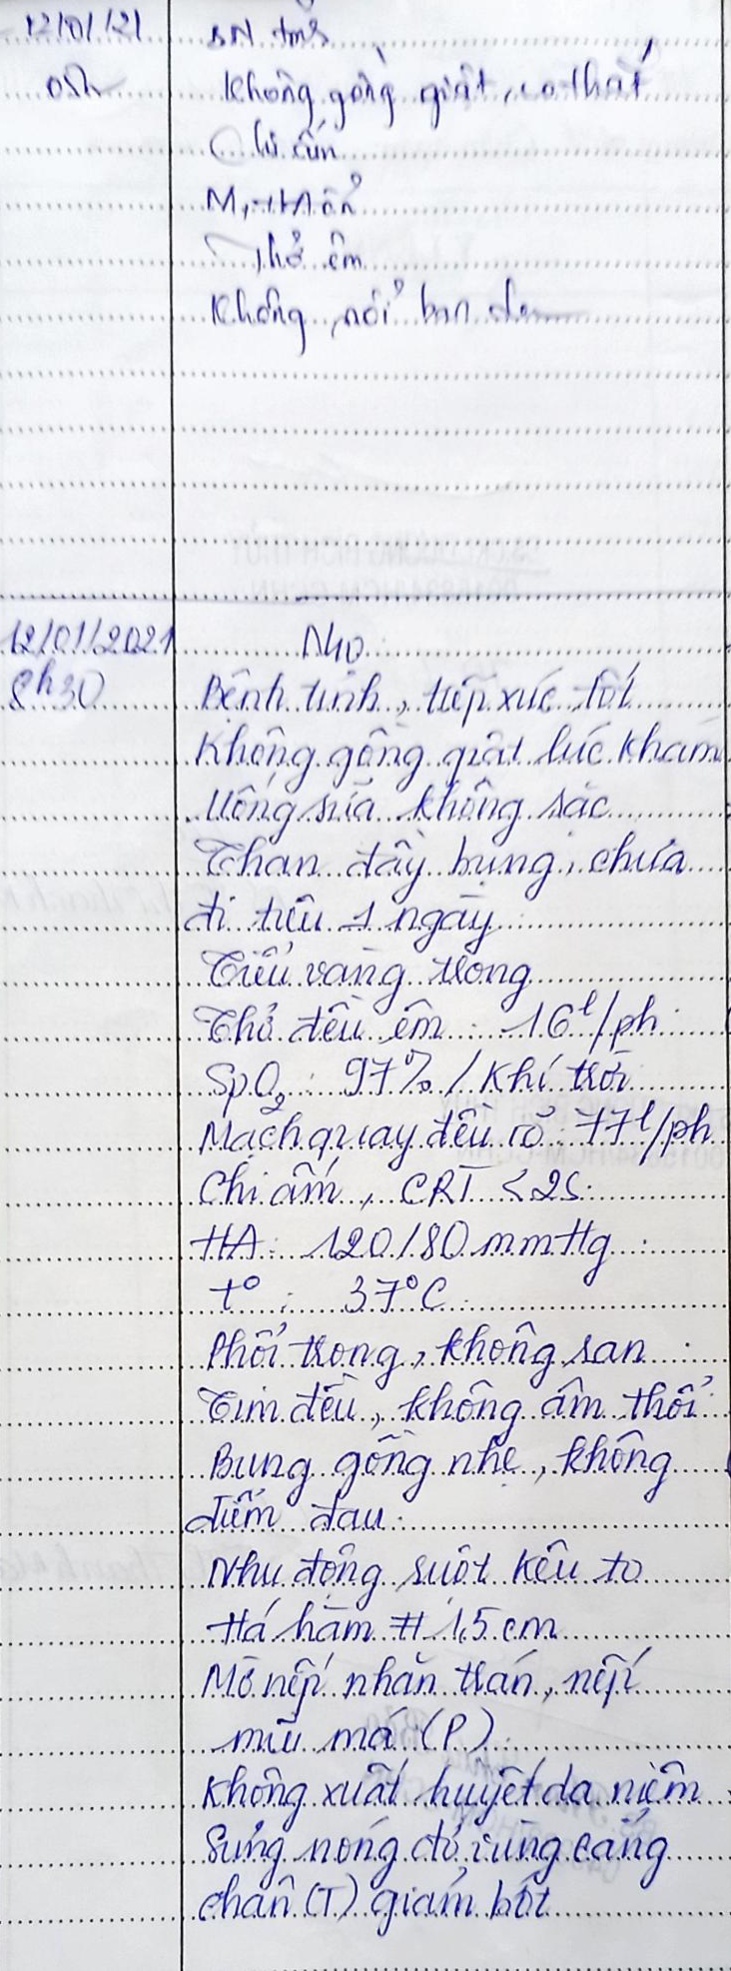 12/01/21 BN tỉnh
05h Không gồng giật, co thắt
Chi ấm
M, HA ổn
Thở êm
Không nổi ban da
12/01/2021 N10
8h30 Bệnh tỉnh, tiếp xúc tốt
Không gồng giật lúc khám
Uống sữa không sặc
Than đầy bụng, chưa
đi tiêu 1 ngày
Tiểu vàng trong
Thở đều êm 16 l/ph
SpO2: 97% / khí trời
Mạch quay đều rõ 77 l/ph
Chi ấm, CRT <2s
HA: 120/80 mmHg
t°: 37°C
Phổi trong, không ran
Tim đều, không âm thổi
Bụng gồng nhẹ, không
điểm đau
Nhu động ruột kêu to
Há hàm # 1,5 cm
Mờ nếp nhăn trán, nếp
mũi má (P)
Không xuất huyết da niêm
Sưng nóng đỏ vùng cẳng
chân (T) giảm bớt